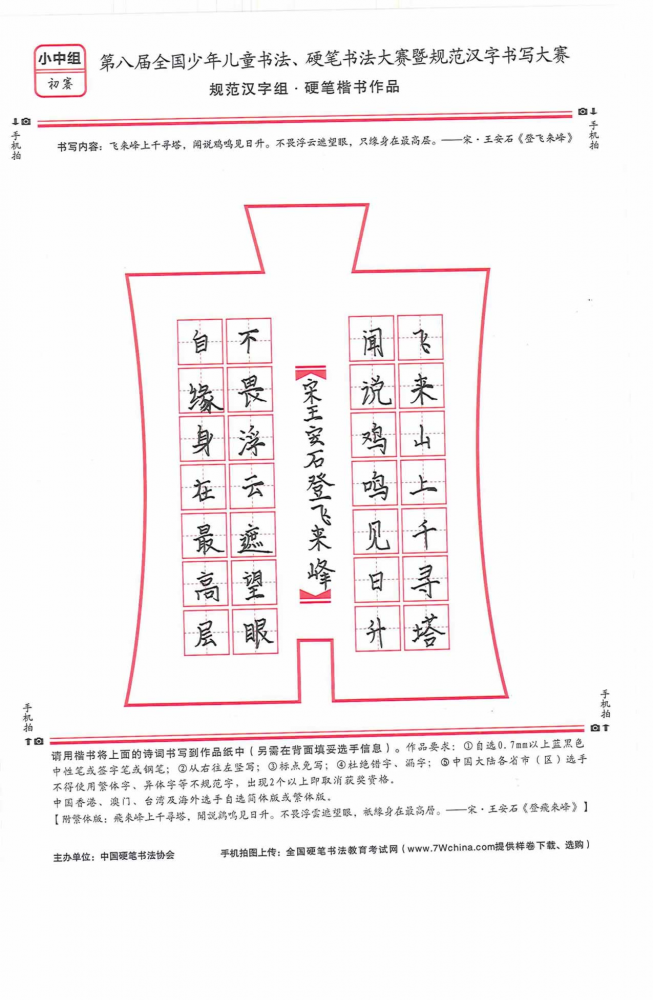 小中组
初赛
第八届全国少年儿童书法、硬笔书法大赛暨规范汉字书写大赛
规范汉字组·硬笔楷书作品
手机拍
手机拍
书写内容：飞来峰上千寻塔，闻说鸡鸣见日升。不畏浮云遮望眼，只缘身在最高层。——宋·王安石《登飞来峰》
飞来山上千寻塔
闻说鸡鸣见日升
宋王安石登飞来峰
不畏浮云遮望眼
自缘身在最高层
手机拍
手机拍
请用楷书将上面的诗词书写到作品纸中（另需在背面填妥选手信息）。作品要求：①自选0.7mm以上蓝黑色
中性笔或签字笔或钢笔；②从右往左竖写；③标点免写；④杜绝错字、漏字；⑤中国大陆各省市（区）选手
不得使用繁体字、异体字等不规范字，出现2个以上即取消获奖资格。
中国香港、澳门、台湾及海外选手自选简体版或繁体版。
【附繁体版：飛來峰上千尋塔，聞說鷄鳴見日升。不畏浮雲遮望眼，祇緣身在最高層。——宋·王安石《登飛來峰》】
主办单位：中国硬笔书法协会
手机拍图上传：全国硬笔书法教育考试网（www.7Wchina.com提供样卷下载、选购）